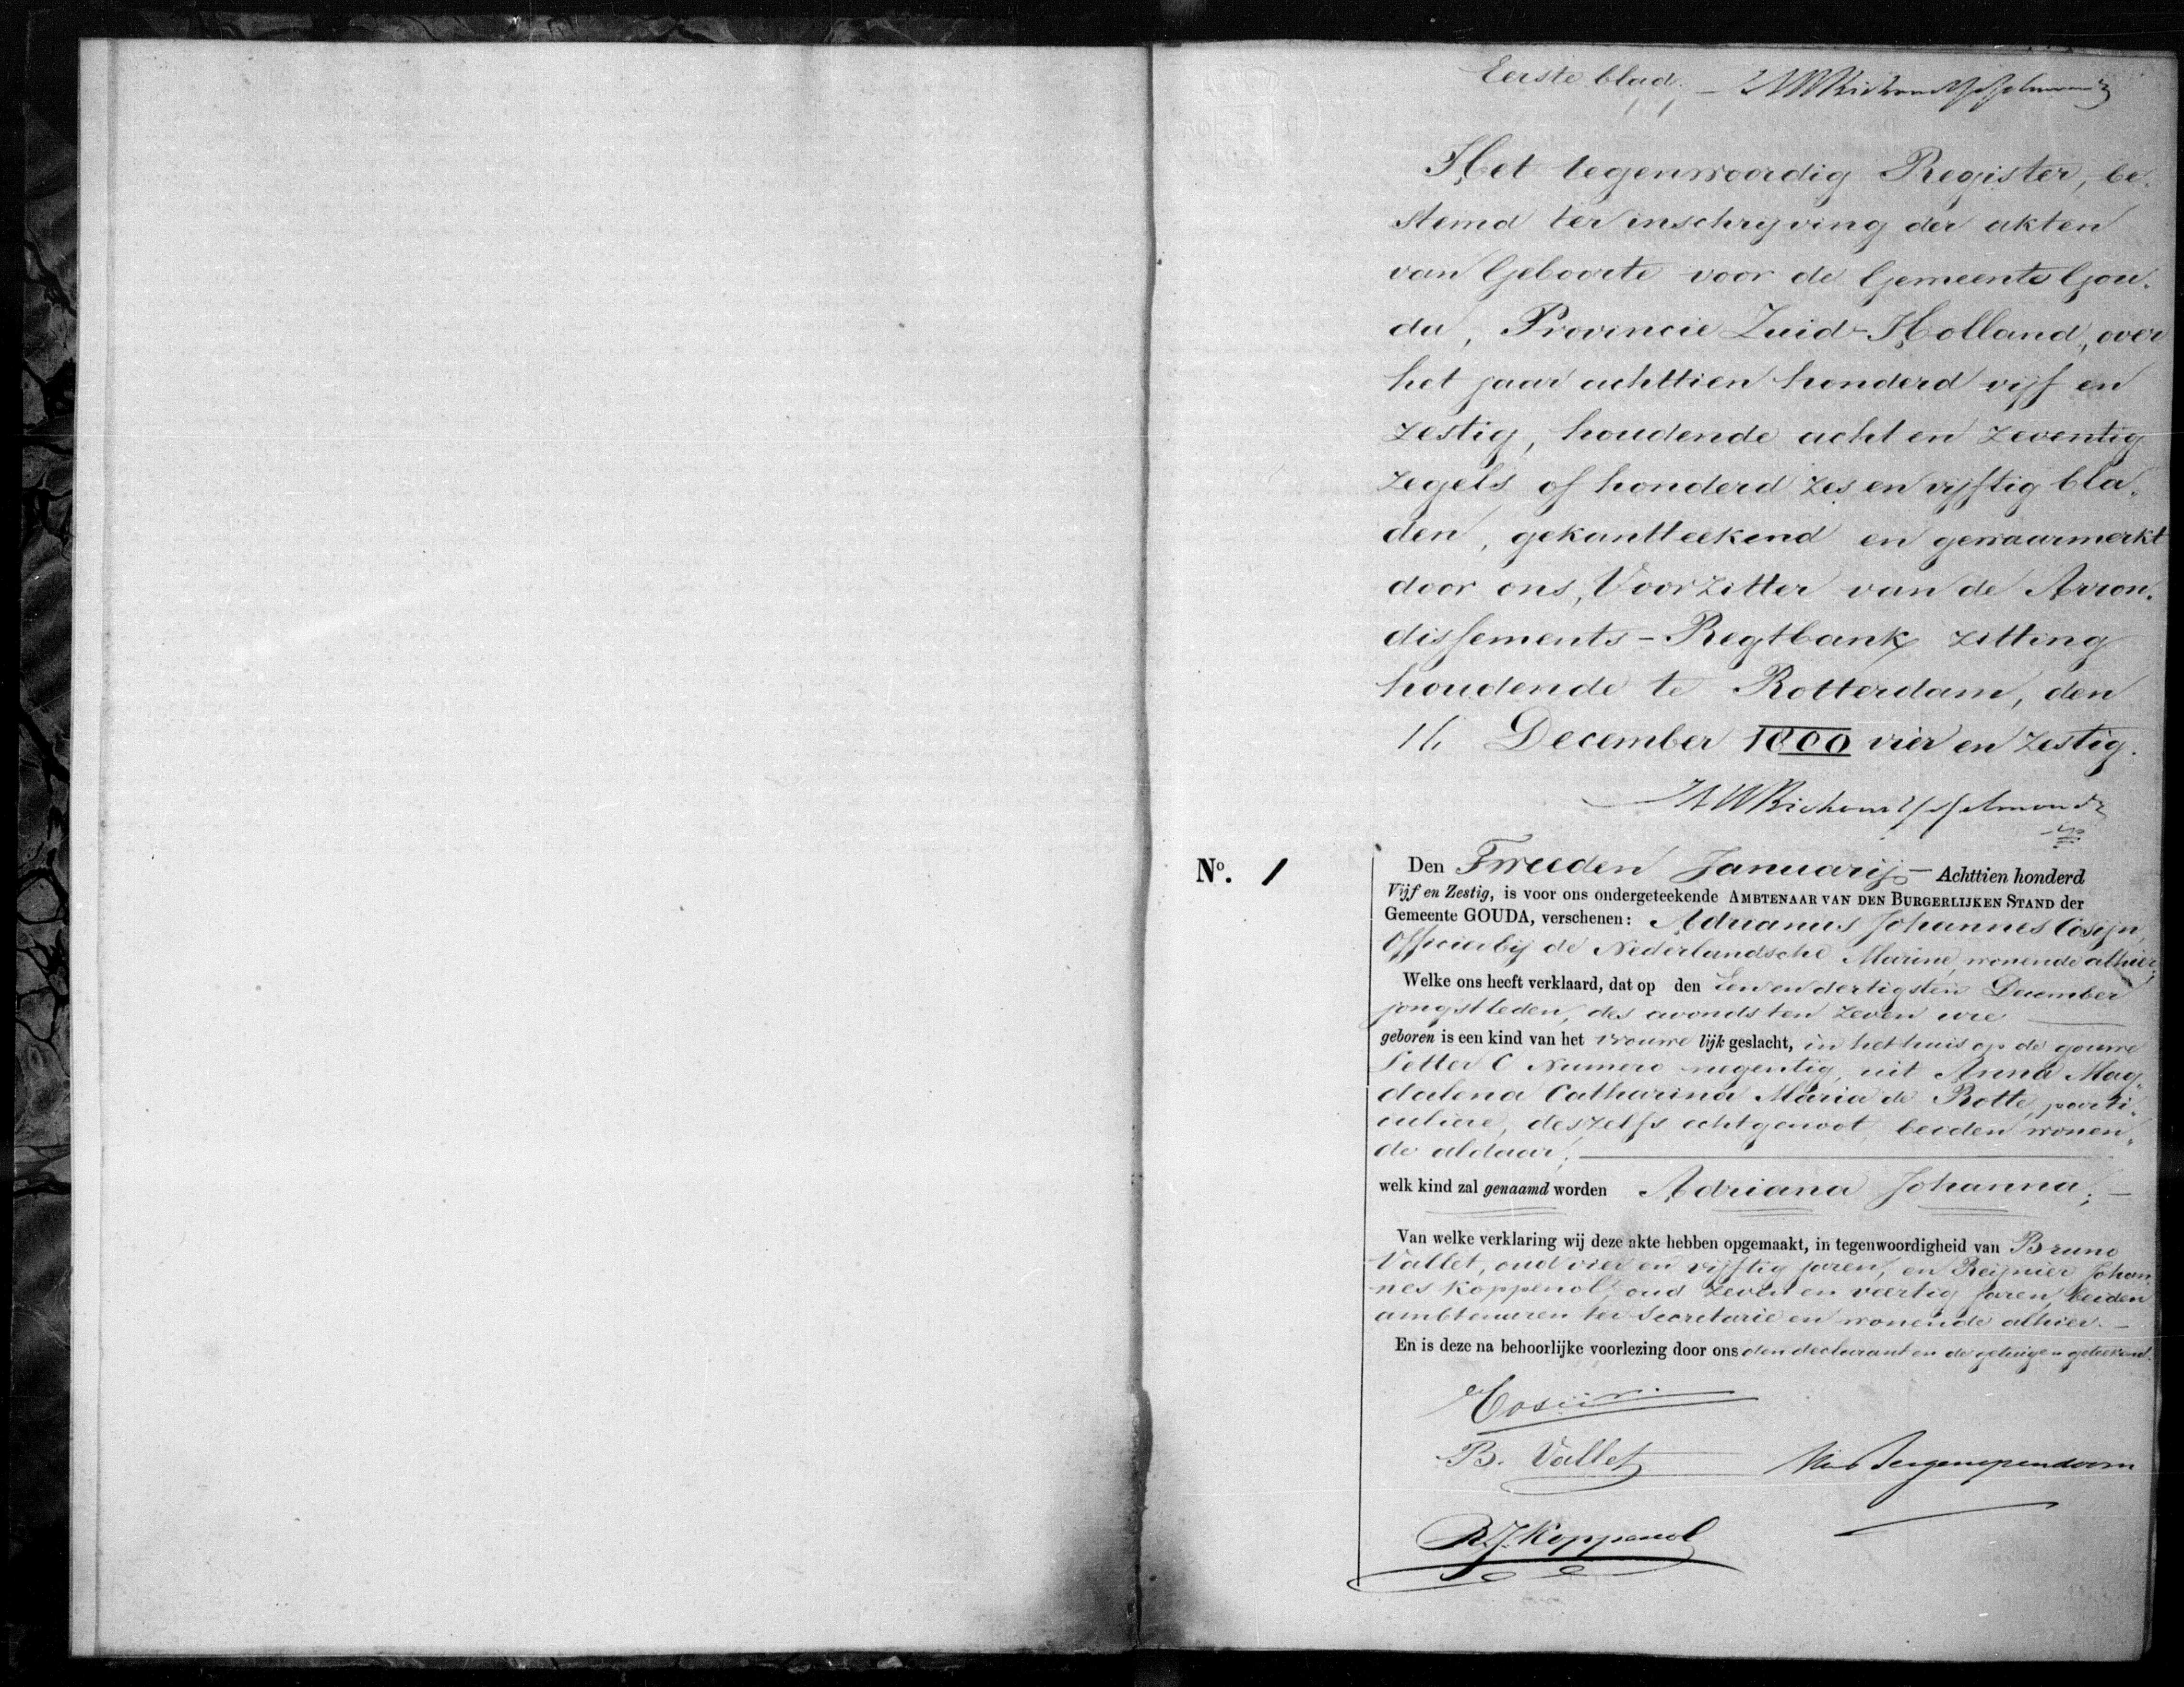 Eerste blad.
Het tegenwoordig Register, be-
stemd ter inschrijving der akten
van Geboorte voor de Gemeente Gou-
da, Provincie Zuid-Holland, over
het jaar achttien honderd vijf en
zestig, houdende acht en zeventig
zegels of honderd zes en vijftig bla-
den, gekantteekend en gewaarmerkt
door ons, Voorzitter van de Arron-
dissements-Regtbank zitting
houdende te Rotterdam, den
December 1800 vier en zestig.
No. 1
Den Tweeden Januarij - Achttien honderd
Vijf en Zestig, is voor ons ondergeteekende AMBTENAAR VAN DEN BURGERLIJKEN STAND der
Gemeente GOUDA, verschenen: Adrianus Johannes Cosijn,
Officier bij de Nederlandsche Marine, wonende alhier;
Welke ons heeft verklaard, dat op den Een en dertigsten December
jongstleden, des avonds ten zeven ure
geboren is een kind van het vrouwe lijk geslacht, in het huis op de gouwe
Letter C Numero negentig, uit Anna Mag-
dalena Catharina Maria de Rotte, parti-
culiere, deszelfs echtgenoot, beiden wonen-
de aldaar;
welk kind zal genaamd worden Adriana Johanna;
Van welke verklaring wij deze akte hebben opgemaakt, in tegenwoordigheid van Bruno
Vallet, oud vier en vijftig jaren, en Reijnier Johan-
nes Koppenol, oud zeven en veertig jaren, beiden
ambtenaren ter Secretarie en wonende alhier.
En is deze na behoorlijke voorlezing door ons den declarant en de getuigen geteekend.
Cosijn
B. Vallet
R.J. Koppenol